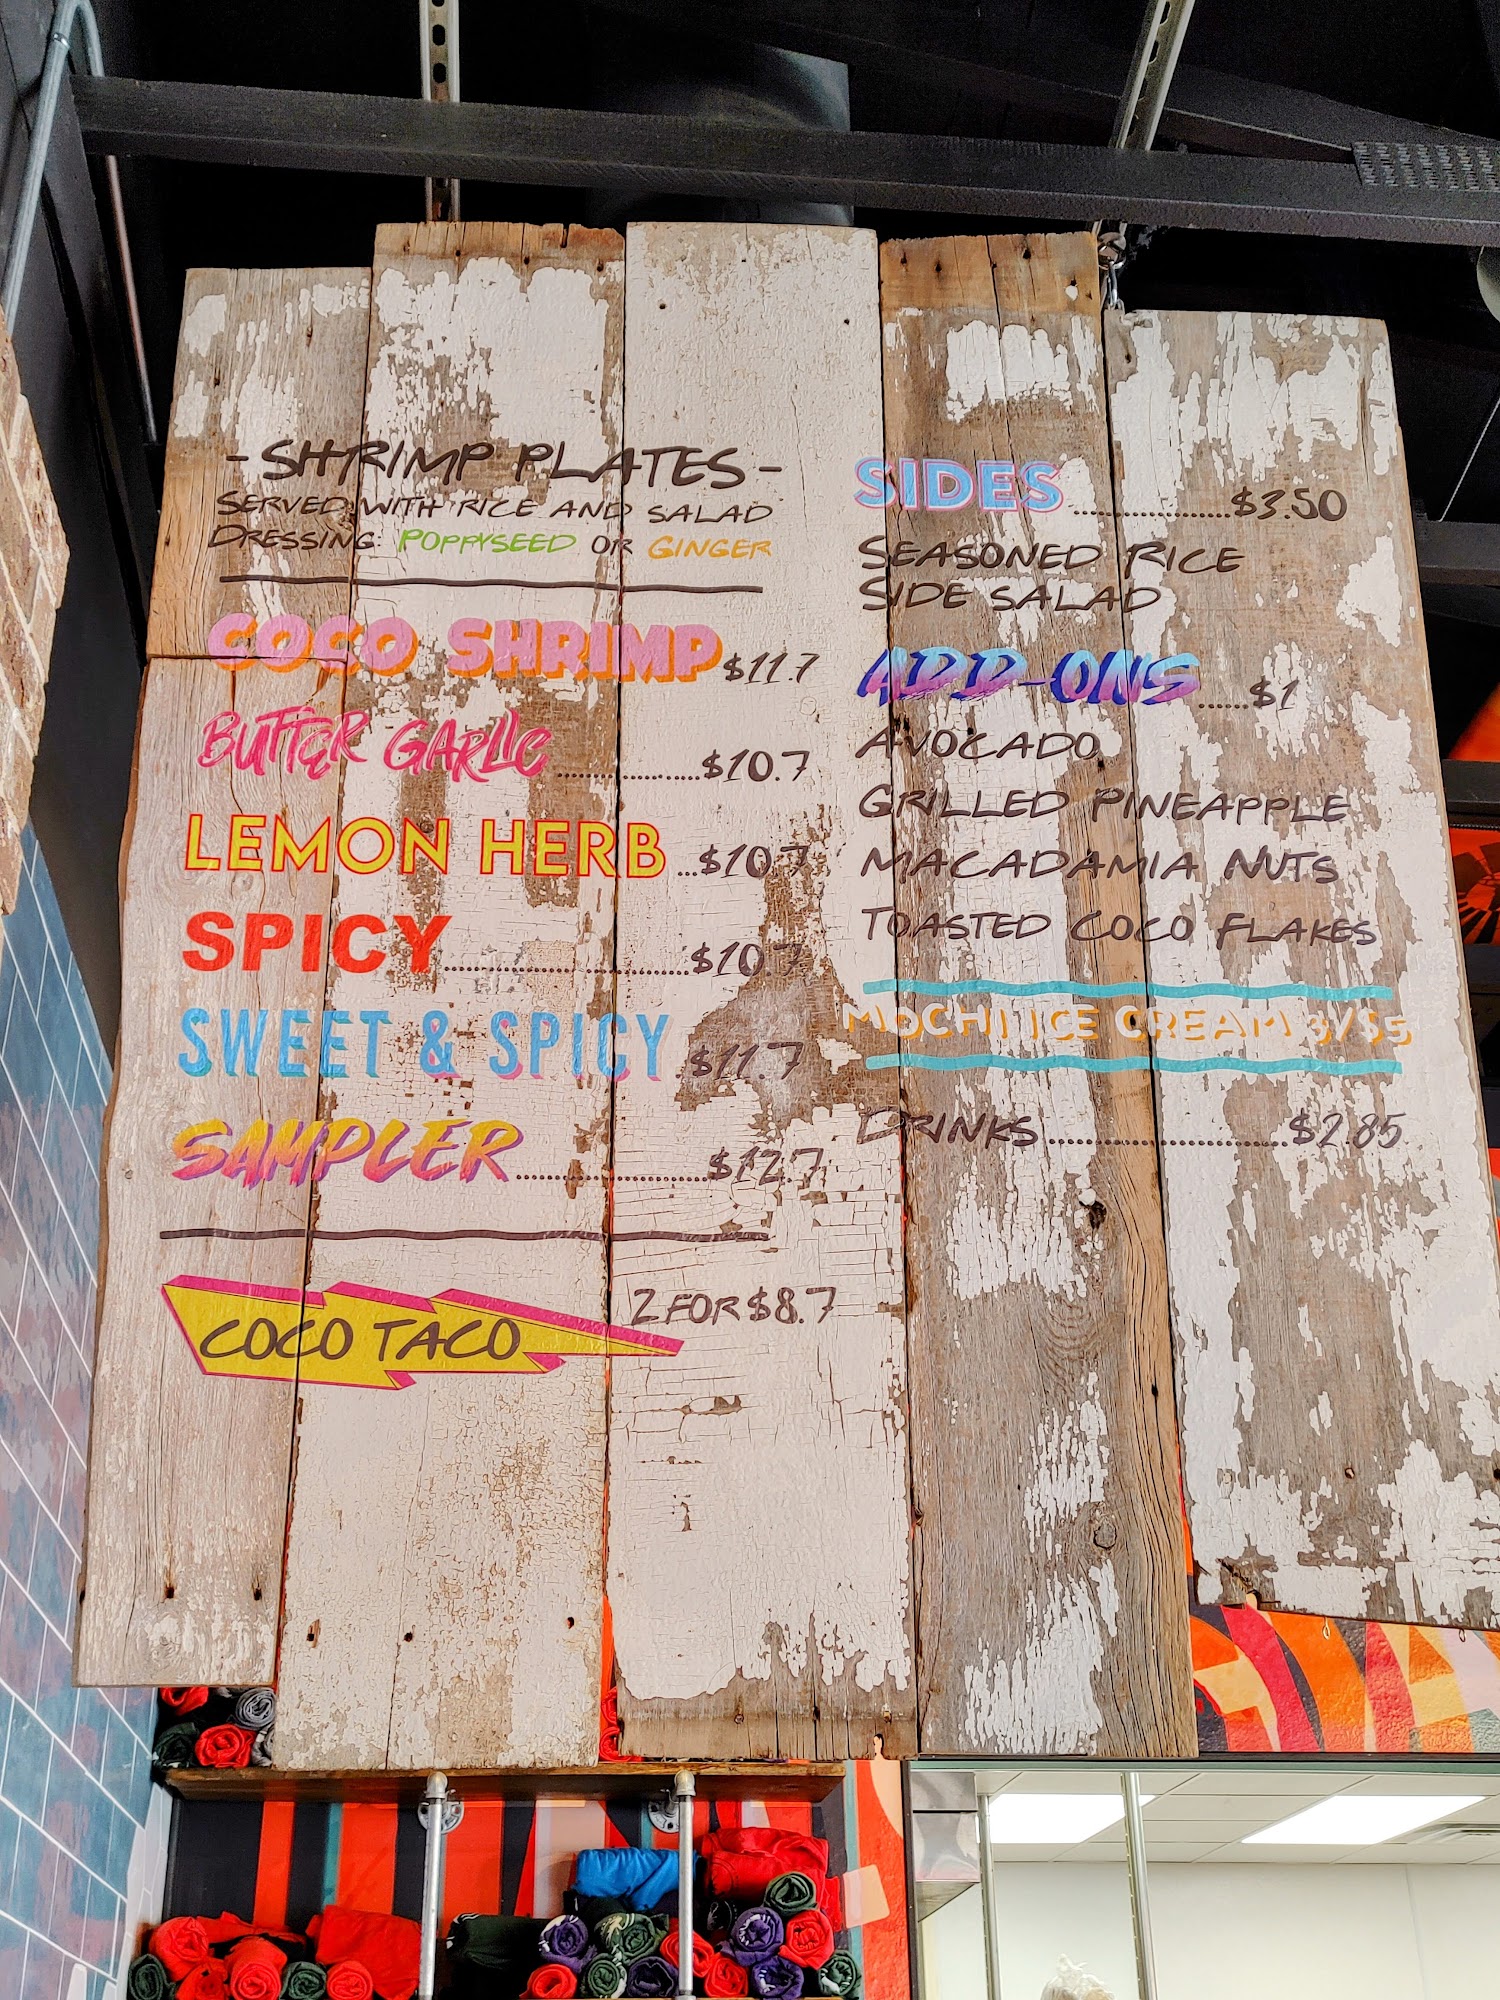 -SHRIMP PLATES-
SERVED WITH RICE AND SALAD
DRESSING: POPPYSEED OR GINGER
COCO SHRIMP $11.7
BUTTER GARLIC..................$10.7
LEMON HERB...$10.7
SPICY..............................$10.7
SWEET & SPICY $11.7
SAMPLER........................$12.7
COCO TACO 2 FOR $8.7
SIDES....................$3.50
SEASONED RICE
SIDE SALAD
ADD-ONS......$1
AVOCADO
GRILLED PINEAPPLE
MACADAMIA NUTS
TOASTED COCO FLAKES
MOCHI ICE CREAM 3/$5
DRINKS..............................$2.85